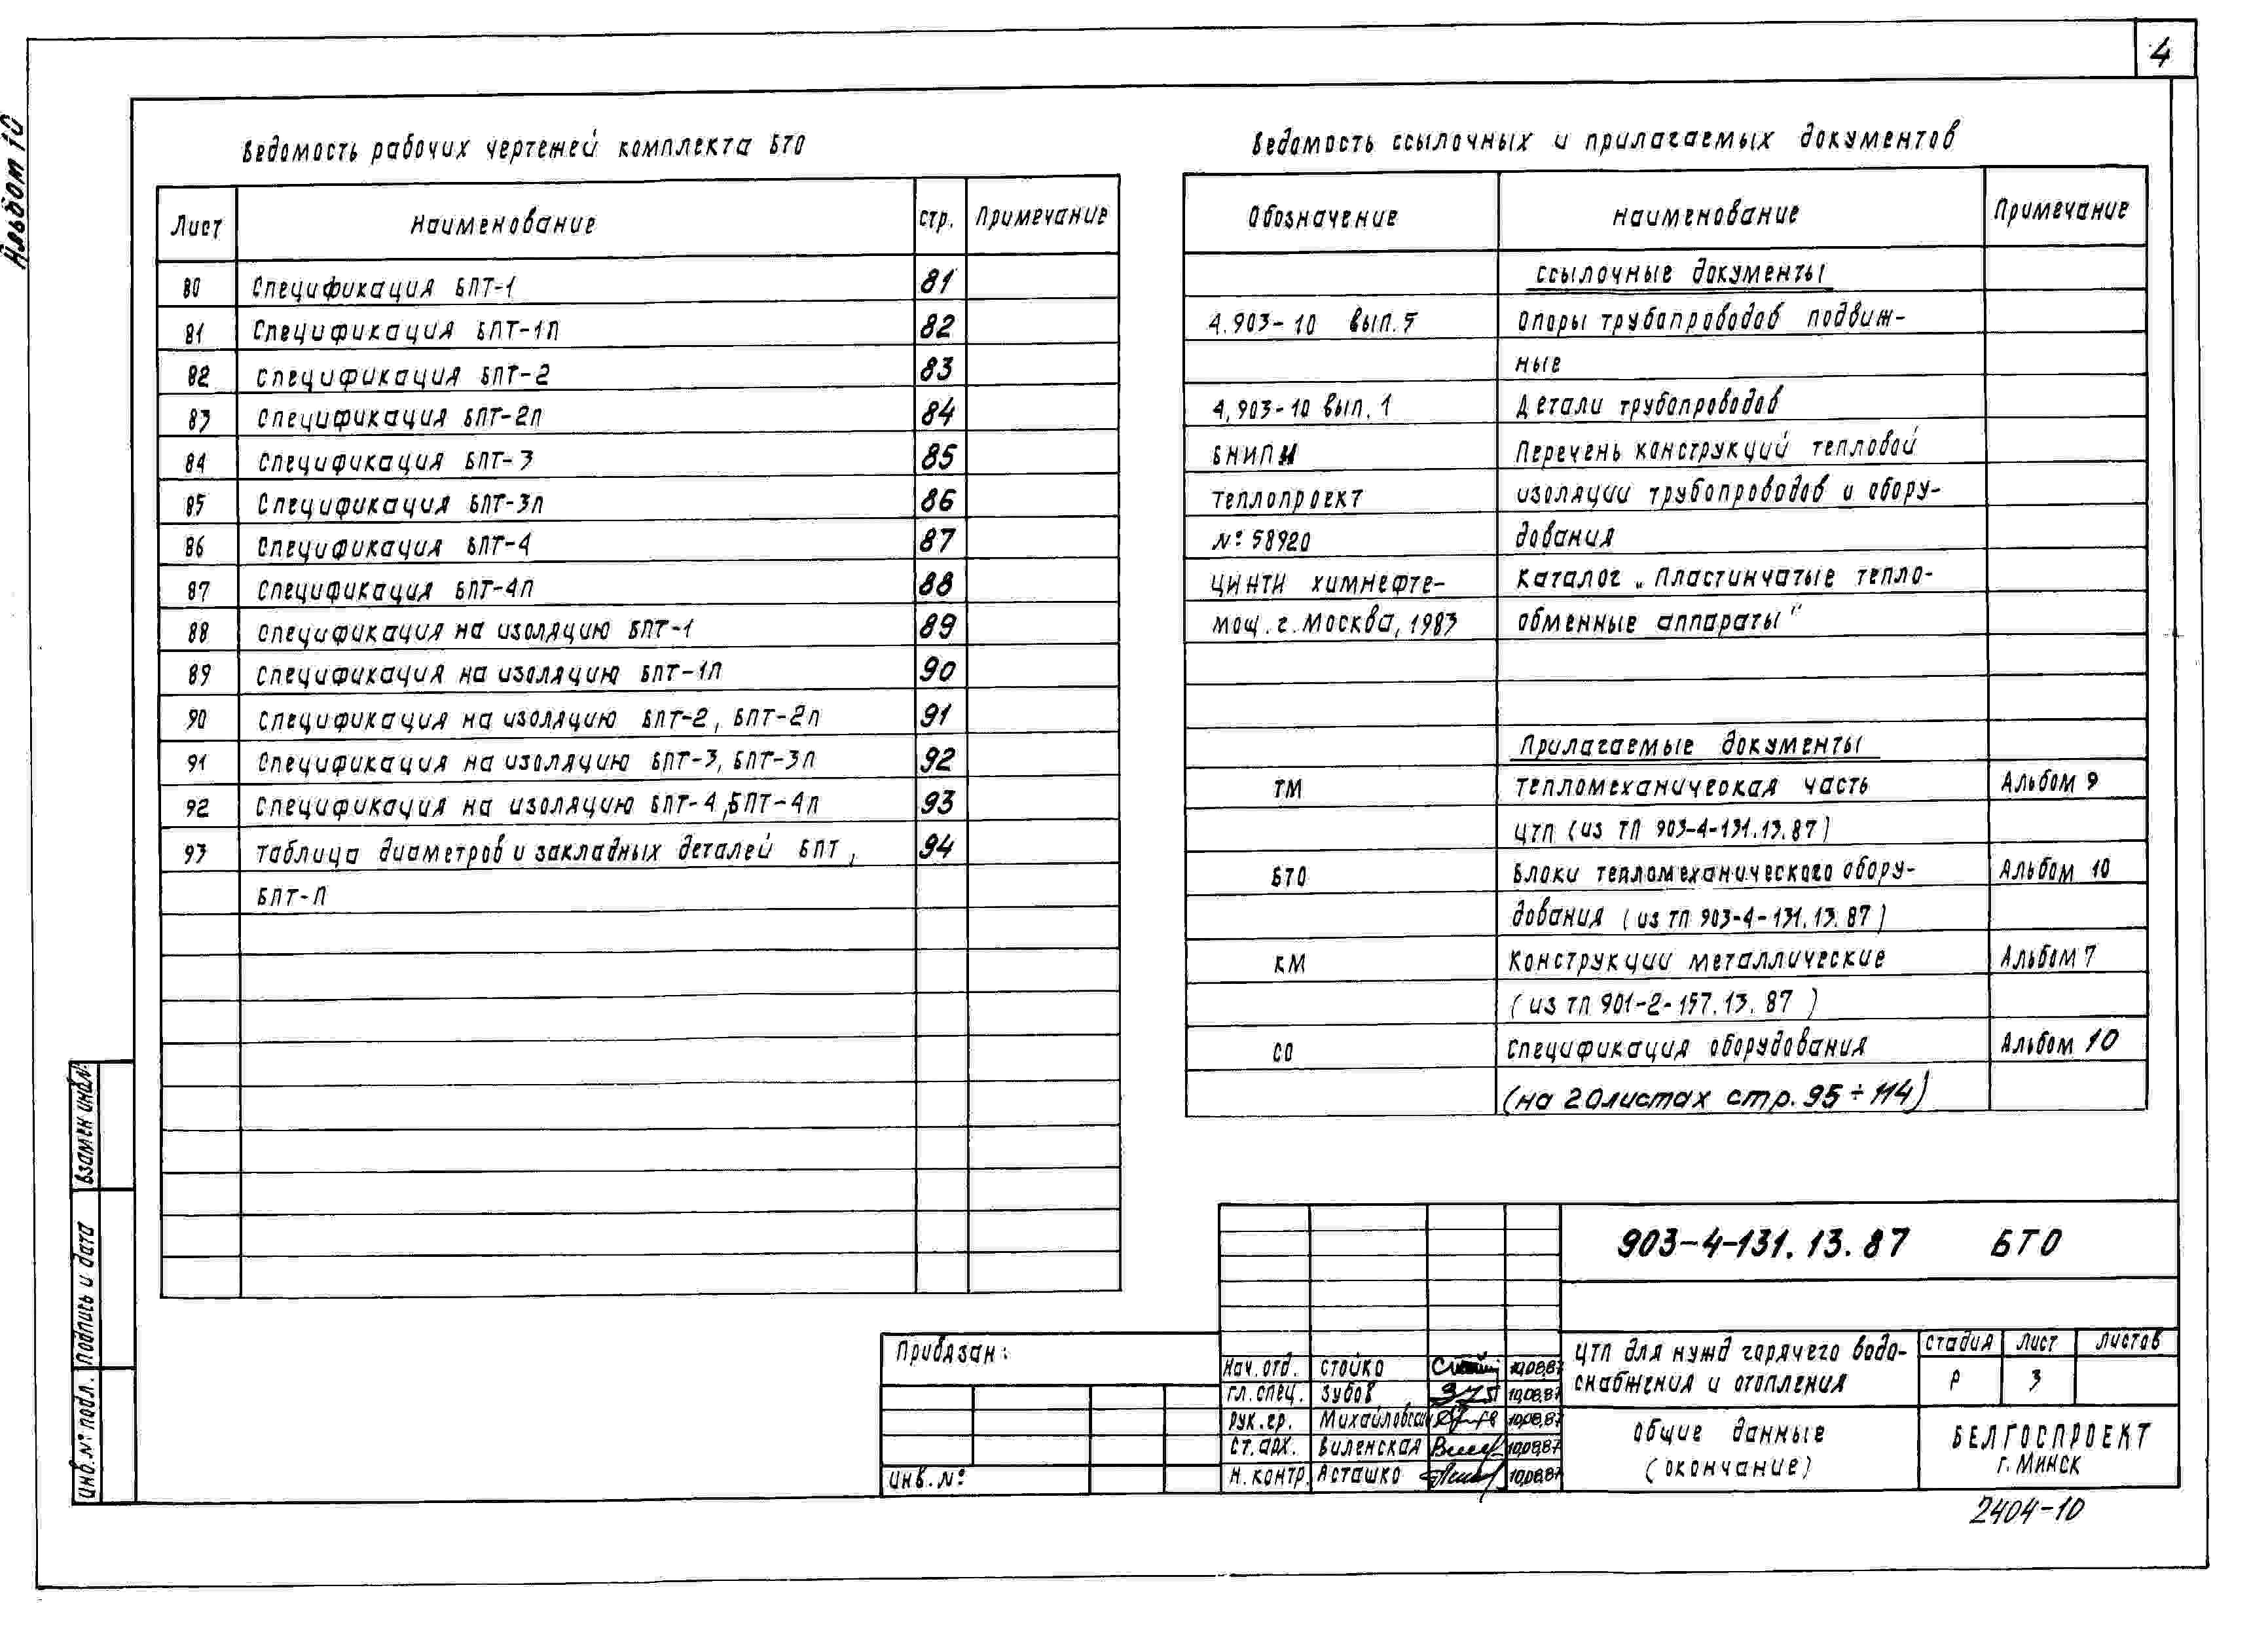 4
Альбом 10
Ведомость рабочих чертежей комплекта БТО
Лист Наименование стр. Примечание
80 Спецификация БПТ-1 81
81 Спецификация БПТ-1П 82
82 Спецификация БПТ-2 83
83 Спецификация БПТ-2П 84
84 Спецификация БПТ-3 85
85 Спецификация БПТ-3П 86
86 Спецификация БПТ-4 87
87 Спецификация БПТ-4П 88
88 Спецификация на изоляцию БПТ-1 89
89 Спецификация на изоляцию БПТ-1П 90
90 Спецификация на изоляцию БПТ-2, БПТ-2П 91
91 Спецификация на изоляцию БПТ-3, БПТ-3П 92
92 Спецификация на изоляцию БПТ-4, БПТ-4П 93
93 Таблица диаметров и закладных деталей БПТ, 94
БПТ-П
Ведомость ссылочных и прилагаемых документов
Обозначение Наименование Примечание
Ссылочные документы
4.903-10 вып.5 Опоры трубопроводов подвиж-
ные
4.903-10 вып.1 Детали трубопроводов
ВНИПИ Перечень конструкций тепловой
Теплопроект изоляции трубопроводов и обору-
№ 58920 дования
ЦИНТИ химнефте- Каталог „Пластинчатые тепло-
мощ. г. Москва, 1983 обменные аппараты"
Прилагаемые документы
ТМ Тепломеханическая часть Альбом 9
ЦТП (из ТП 903-4-131.13.87)
БТО Блоки тепломеханического обору- Альбом 10
дования (из ТП 903-4-131.13.87)
КМ Конструкции металлические Альбом 7
(из ТП 901-2-157.13.87)
СО Спецификация оборудования Альбом 10
(на 20 листах стр. 95÷114)
Взамен инв.№
Подпись и дата
Инв.№ подл.
Привязан:
Инв.№
903-4-131.13.87 БТО
Нач. отд. Стойко 10.08.87
Гл. спец. Зубов 10.08.87
Рук. гр. Михайловская 10.08.87
Ст. арх. Виленская 10.08.87
Н. контр. Асташко 10.08.87
ЦТП для нужд горячего водо-
снабжения и отопления
Стадия Лист Листов
Р 3
Общие данные
(окончание)
БЕЛГОСПРОЕКТ
г. Минск
2404-10